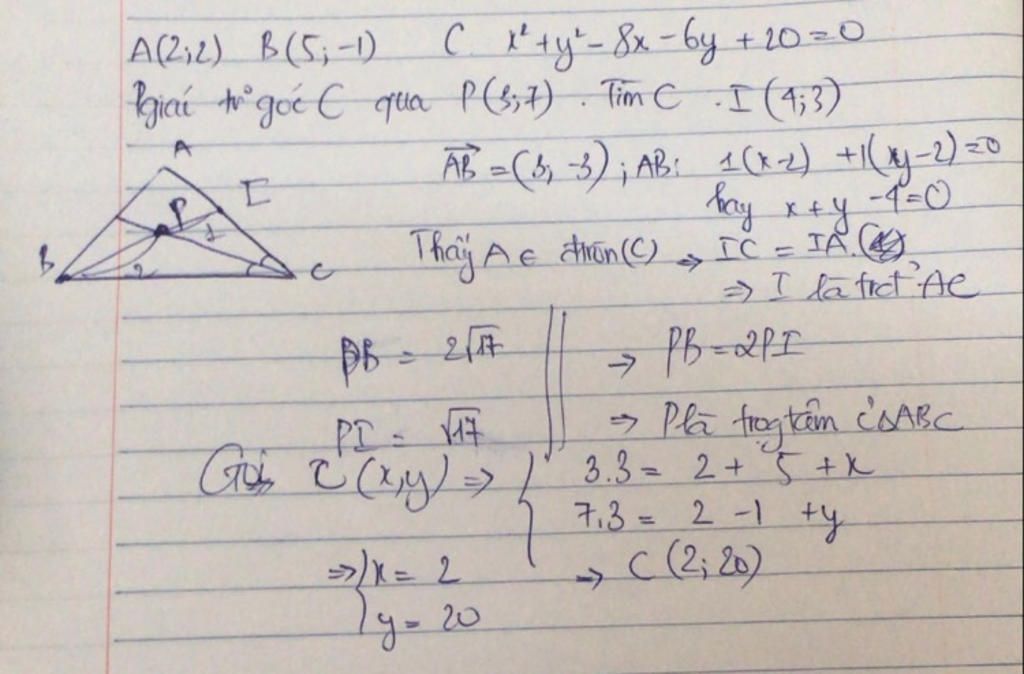 A(2;2) B(5;-1) C x²+y²-8x-6y+20=0
Pgiác tr° góc C qua P(3;7). Tìm C. I(4;3)
A
AB→ = (3, -3); AB: 1(x-2) +1(y-2)=0
hay x+y-4=0
P
I
1
B
2
C
Thấy A ∈ đtròn(C) → IC = IA.
⇒ I là trđ AC
PB = 2√17
→ PB=2PI
PI = √17
⇒ P là trọg tâm c' ΔABC
Gọi C(x,y) ⇒ { 3.3 = 2 + 5 + x
7.3 = 2 -1 +y
⇒ { x = 2
y = 20
→ C(2;20)